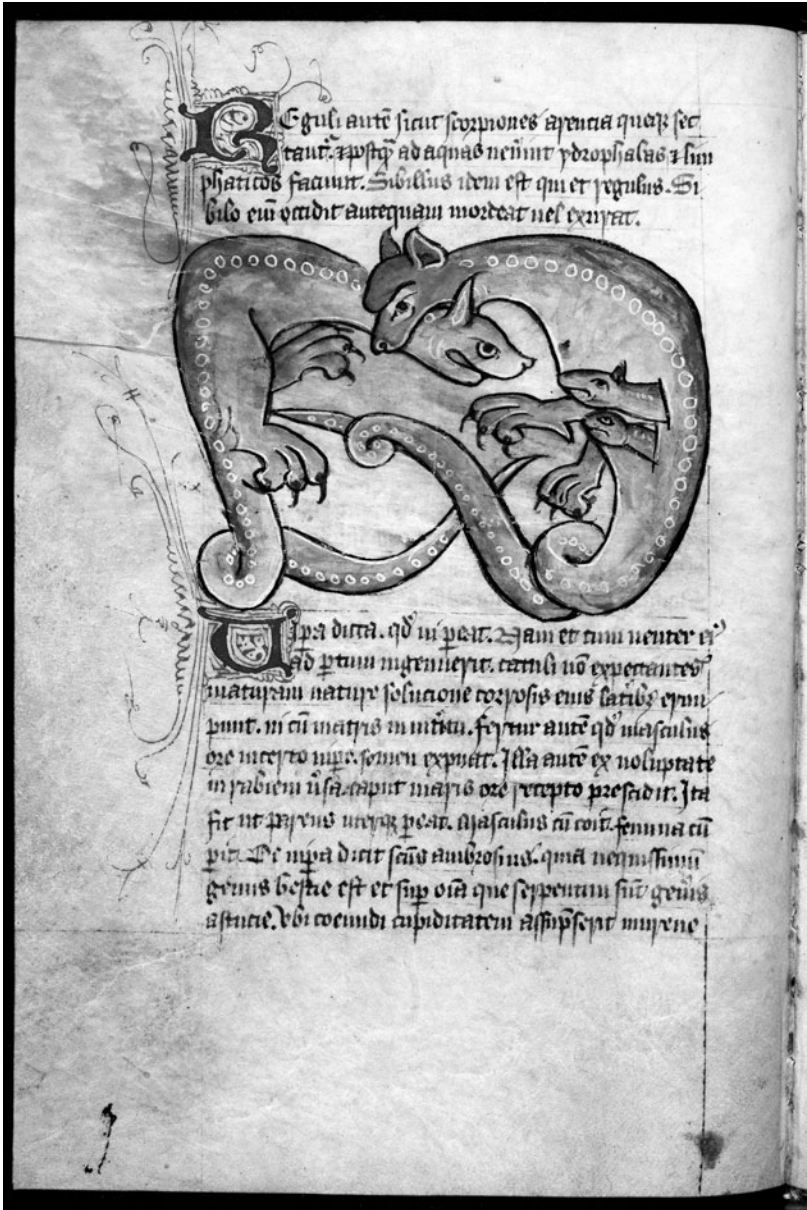 Eguli autē sicut scorpiones arentia queq; sec
tant᷑. ⁊ postq̄ ad aquas ueniūt ydrophalas ⁊ lim
phaticos faciunt. Sibillus idem est qui et regulus. Si
bilo eni occidit antequam mordeat uel exurat.
Vipa dicta. qd̓ ui pariat. Nam et cum uenter ei᷒
ad ptum ingemuerit. catuli nō expectantes
maturam nature solucione corrosis eius laterib; erum
punt. ui cū matris int̓itu. fertur autē qd̓ masculus
ore inserto uipe. semen expuat. Illa autē ex uoluptate
in rabiem ūsa. caput maris ore recepto prescidit. Ita
fit ut parens uterq; peat. Masculus cū coit. femina cū
pit. De uipa dicit scūs ambrosius. quia nequissimū
genus bestie est et sup oīa que serpentini sūt gen̓is
astucie. Vbi coeundi cupiditatem assūpserit murene